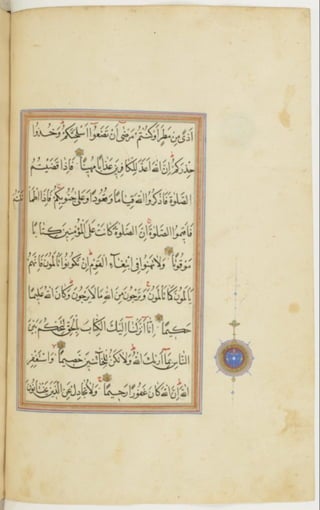 اَذًى مِن مَطَرٍ اَوكُنتُم مَرضٰى اَن تَضَعُوا اَسلِحَتَكُم وَخُذُوا
حِذرَكُم اِنَّ اللهَ اَعَدَّ لِلكَافِرِينَ عَذَابًا مُهِينًا فَاِذَا قَضَيتُم
الصَّلوةَ فَاذكُرُوا اللهَ قِيَامًا وَقُعُودًا وَعَلٰى جُنُوبِكُم فَاِذَا اطمَأنَنتُم
فَاَقِيمُوا الصَّلوةَ اِنَّ الصَّلوةَ كَانَت عَلَى المُؤمِنِينَ كِتَابًا
مَوقُوتًا وَلَا تَهِنُوا فِى ابتِغَاءِ القَومِ اِن تَكُونُوا تَألَمُونَ فَاِنَّهُم
يَألَمُونَ كَمَا تَألَمُونَ وَتَرجُونَ مِنَ اللهِ مَا لَا يَرجُونَ وَكَانَ اللهُ عَلِيمًا
حَكِيمًا اِنَّا اَنزَلنَا اِلَيكَ الكِتَابَ بِالحَقِّ لِتَحكُمَ بَينَ
النَّاسِ بِمَا اَرٰيكَ اللهُ وَلَا تَكُن لِلخَائِنِينَ خَصِيمًا وَاستَغفِرِ
اللهَ اِنَّ اللهَ كَانَ غَفُورًا رَحِيمًا وَلَا تُجَادِل عَنِ الَّذِينَ يَختَانُونَ